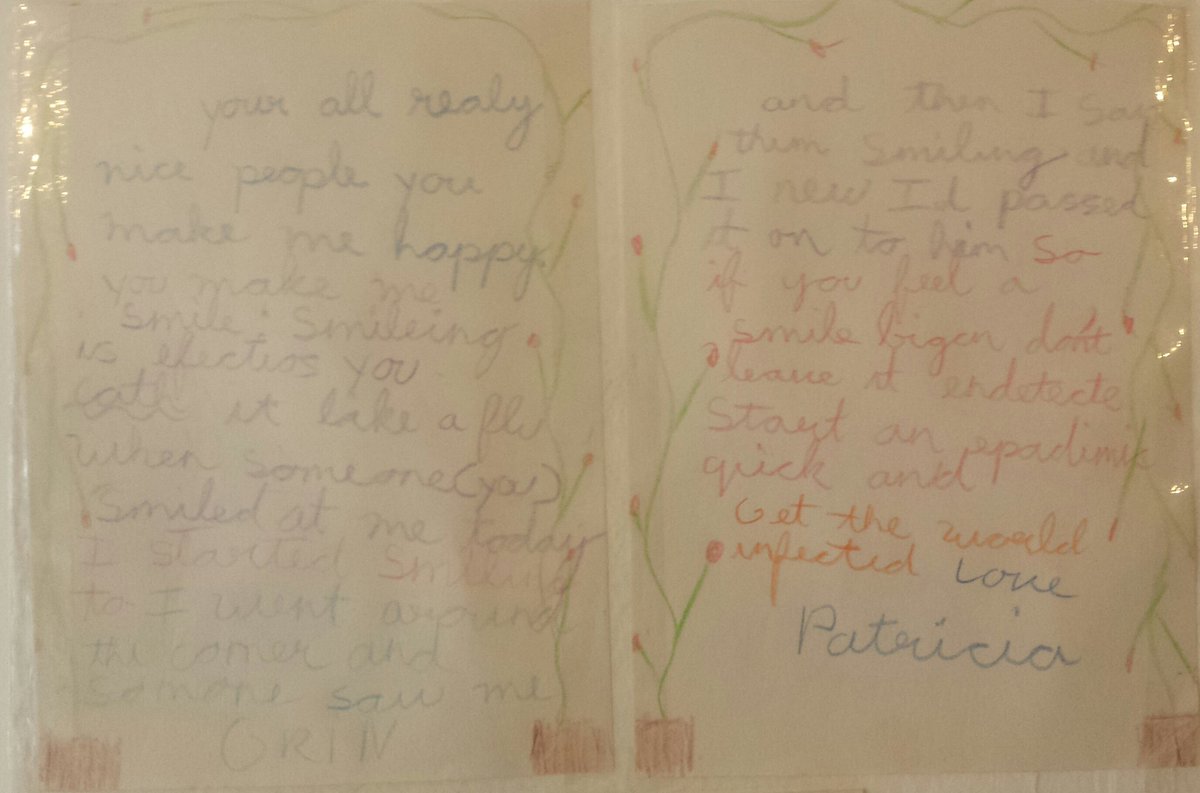 your all realy
nice people you
make me happy
you make me
smile. Smileing
is efectios you
cath it like a flu
when someone(you)
Smiled at me today
I started Smileing
to I went around
the corner and
somone saw me
GRIN
and then I saw
them smiling and
I new I'd passed
it on to him So
if you feel a
smile bigen don't
leave it endetecte
Start an epadimik
quick and
Get the world
infected Love
Patricia